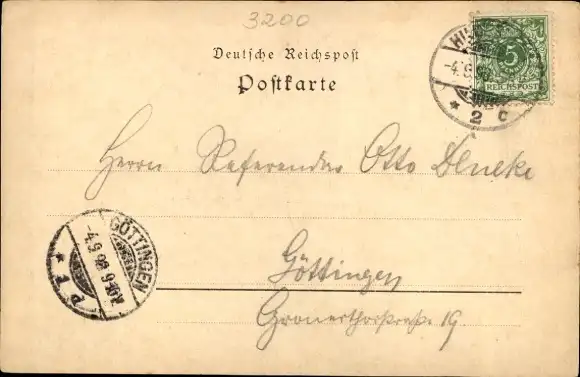 3200
Deutsche Reichspost
Postkarte
5
REICHSPOST
-4.9.98
* 2 c
Herrn Referendar Otto Deneke
GÖTTINGEN
-4.9.98 9-10N.
* 1 *
Göttingen
Gronerthorstraße 19.